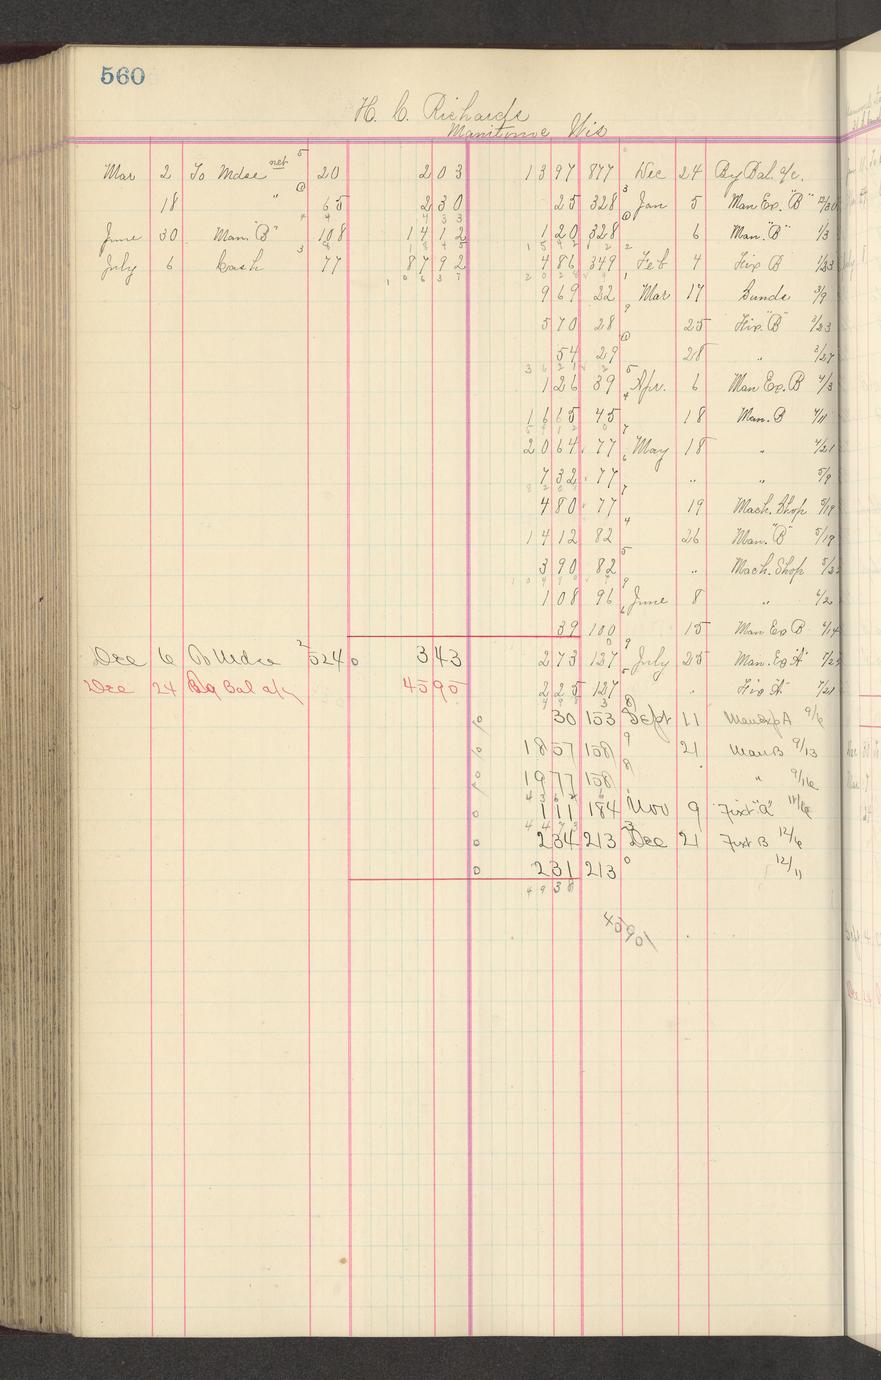 560
H. C. Richards
Manitowoc Wis
Mar 2 To Mdse net 20 2 03 13 97 877 Dec 24 By Bal. a/c.
18 " 65 2 30 25 328 Jan 5 Man Ex. "B" 12/30
June 30 Man. "B" 108 14 12 1 20 328 6 Man. "B" 1/3
July 6 Cash 77 87 92 4 86 349 Feb 4 Fix B 1/23
9 69 22 Mar 17 Sunds 3/9
5 70 28 25 Fix. "B" 3/23
54 29 28 " 3/27
1 26 39 Apr. 6 Man Ex. B 4/3
16 65 45 18 Man. B 4/11
20 64 77 May 18 " 4/21
7 32 77 " " 5/9
4 80 77 19 Mach. Shop 5/19
14 12 82 26 Man. "B" 5/19
3 90 82 " Mach. Shop 5/22
1 08 96 June 8 " 6/2
39 100 15 Man Ex B 6/14
Dec 6 To Mdse 524 3 43 2 73 127 July 25 Man. Ex "A" 7/23
Dec 24 By Bal a/c 45 95 2 25 127 " Fix "A" 7/21
30 153 Sept 11 Man Exp A 9/6
18 57 158 21 Man B 9/13
19 77 158 " " 9/16
1 11 184 Nov 9 Fixt "A" 11/6
2 34 213 Dec 21 Fixt B 12/6
2 31 213 12/11
49 38
45901